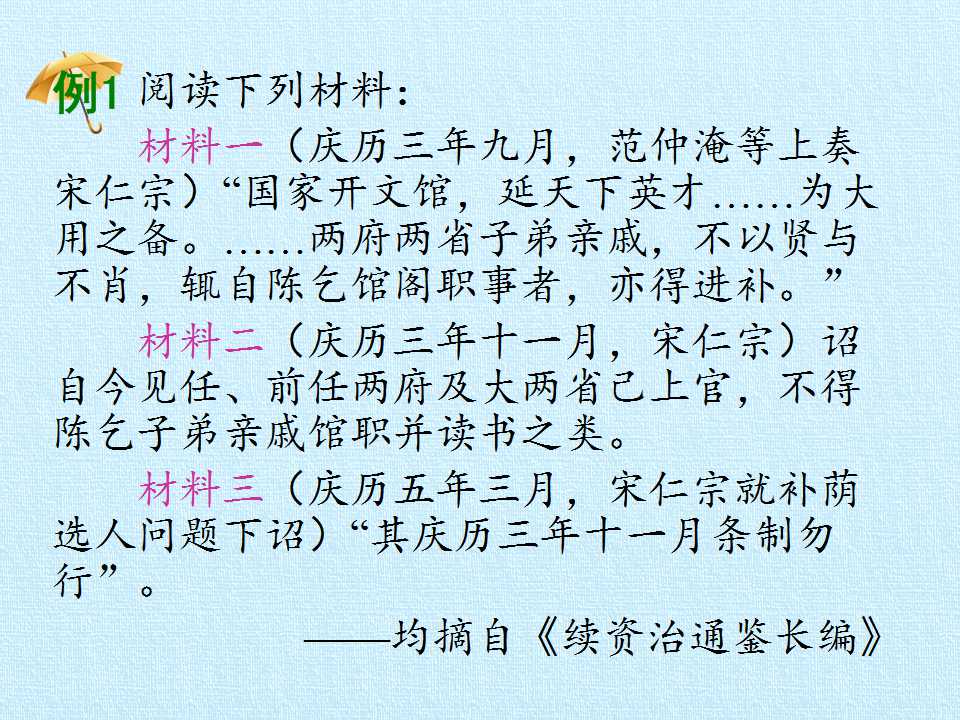 例1 阅读下列材料：
材料一（庆历三年九月，范仲淹等上奏
宋仁宗）“国家开文馆，延天下英才……为大
用之备。……两府两省子弟亲戚，不以贤与
不肖，辄自陈乞馆阁职事者，亦得进补。”
材料二（庆历三年十一月，宋仁宗）诏
自今见任、前任两府及大两省己上官，不得
陈乞子弟亲戚馆职并读书之类。
材料三（庆历五年三月，宋仁宗就补荫
选人问题下诏）“其庆历三年十一月条制勿
行”。
——均摘自《续资治通鉴长编》